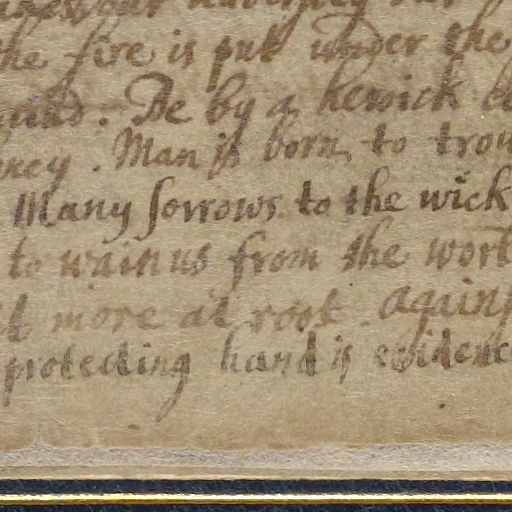 the fire is put under the
. De by a
. Man is born to trou
Many sorrows to the wick
to wain us from the worl
more at root. Again
protecting hand is evidenc